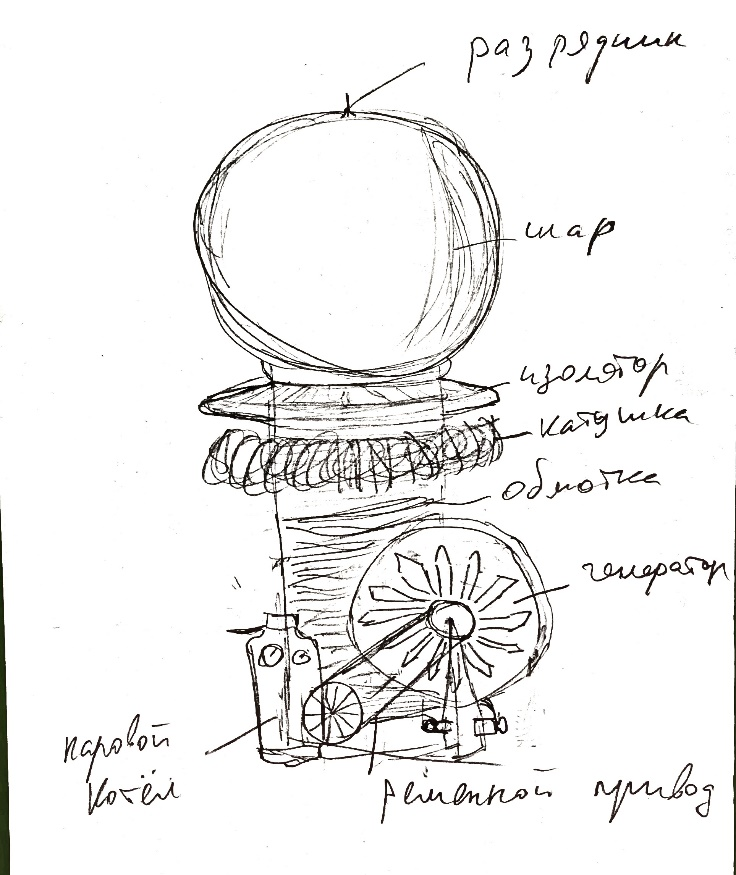 разрядник
шар
изолятор
катушка
обмотка
генератор
паровой
котёл
ременной привод